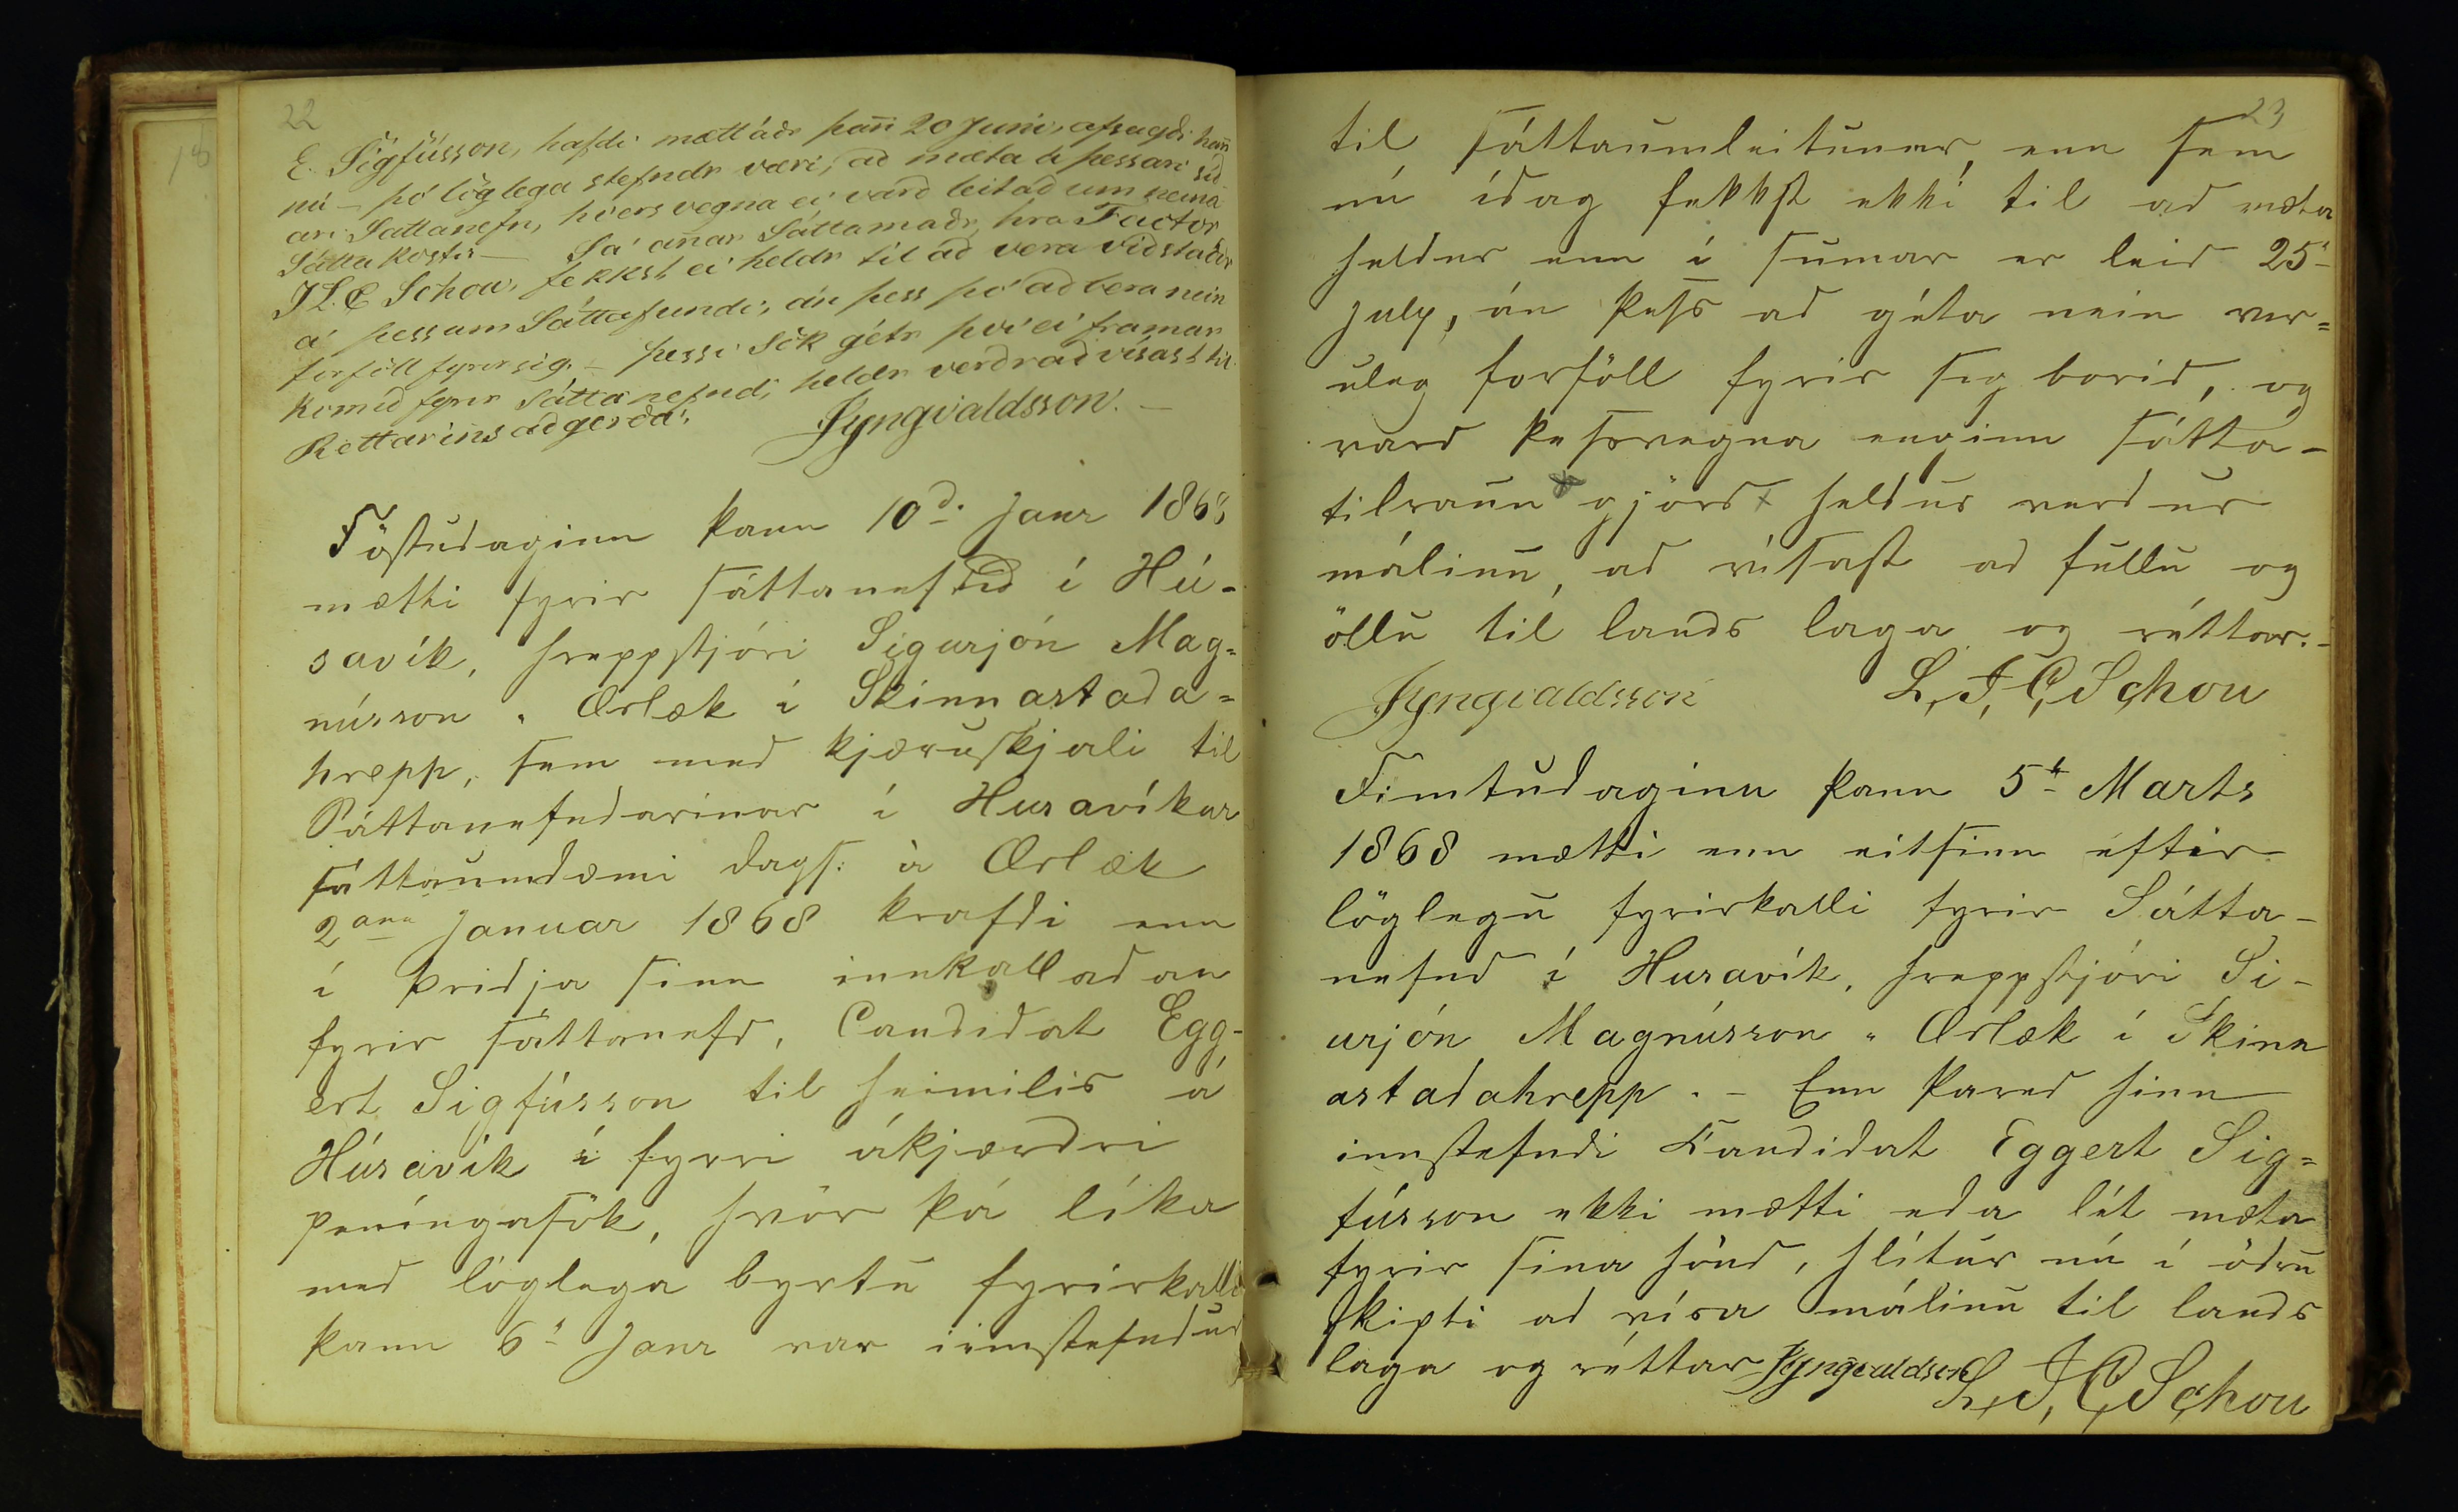 22
E. Sigfússon, hafdi mætt ádr þañ 20 Juni, afsagdi hañ
nú – þó löglega stefndr væri, ad mæta á þessari sid
ari Sattanefn, hvers vegna ei vard leitad um neina
Sátta kosti – Sá añar Sáttamadr, hra Factor
J L. C Schou, fekkst ei heldr til ad vera vidstaddr
á þessum Sáttafundi, án þess þó ad bera nein
forföll fyrir sig. – þessi Sök getr því ei framar
komid fyrir Sáttanefnd, heldr verdr ad vísast til
Rettarins adgerda.
JYngvaldsson. –
Föstudaginn þann 10d. Janr 1868
mætti fyrir sáttanefnd í Hú-
savík, hreppstjóri Sigurjón Mag=
nússon á Ærlæk í Skinnastada=
hrepp, sem med kjæruskjali til
Sáttanefndarinar í Husavíkur
sáttaumdæmi dags: á Ærlæk
2ann Januar 1868 krafdi enn
í þridja sinn innkalladan
fyrir sáttanefd, Candidat Egg-
ert Sigfússon til heimilis á
Húsavík í fyrri ákjærdri
peníngasök, hvör þá líka
med löglega byrtu fyrirkalli
þann 6t Janr var innstefndur
23
til sáttaumleitunar, enn sem
nú ídag fekkst ekki til ad mæta
heldur enn í sumar er leid 25t
july, án þess ad géta nein ver=
uleg forföll fyrir sig borid, og
vard þessvegna enginn sátta-
tilraun gjörd heldur verdur
málinu, ad vísast ad fullu og
öllu til lands laga og réttar. –
JYngvaldsson L, J, C, Schou
Fimtudaginn þann 5t Marts
1868 mætti enn eitsinn eftir
löglegu fyrirkalli fyrir Sátta-
nefnd í Husavík, hreppstjóri Si-
urjón Magnússon á Ærlæk í Skinn
astadahrepp. – Enn þared hinn
innstefndi Kandidat Eggert Sig=
fússon ekki mætti eda lét mæta
fyrir sina hönd, hlítur nú í ödru
skipti ad vísa málinu til lands
laga og réttar JYngvaldsson L, J, C, Schou